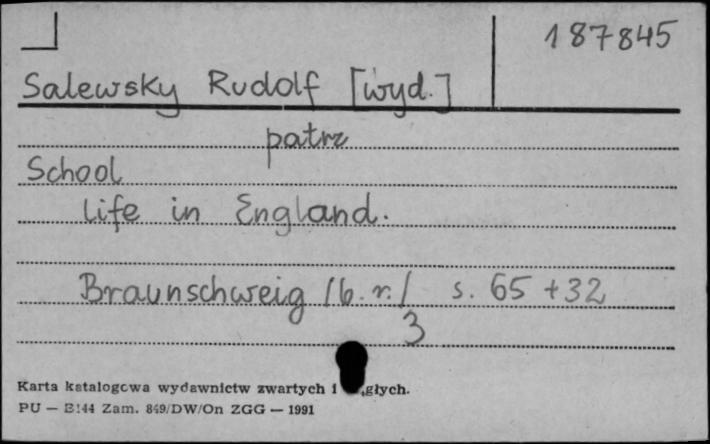 187845
Salewsky Rudolf [wyd.]
patrz
School
life in England.
Braunschweig /b.r./ s. 65 +32
3
Karta katalogowa wydawnictw zwartych i głych.
PU — E!44 Zam. 849/DW/On ZGG — 1991